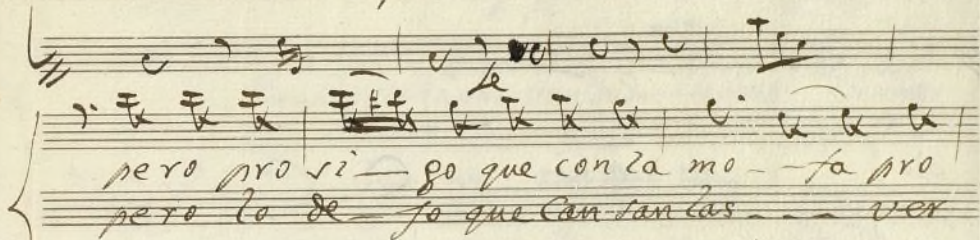 Le
pero pro si - go que con la mo - - fa pro
pero lo de - jo que Can - san las - - - ver